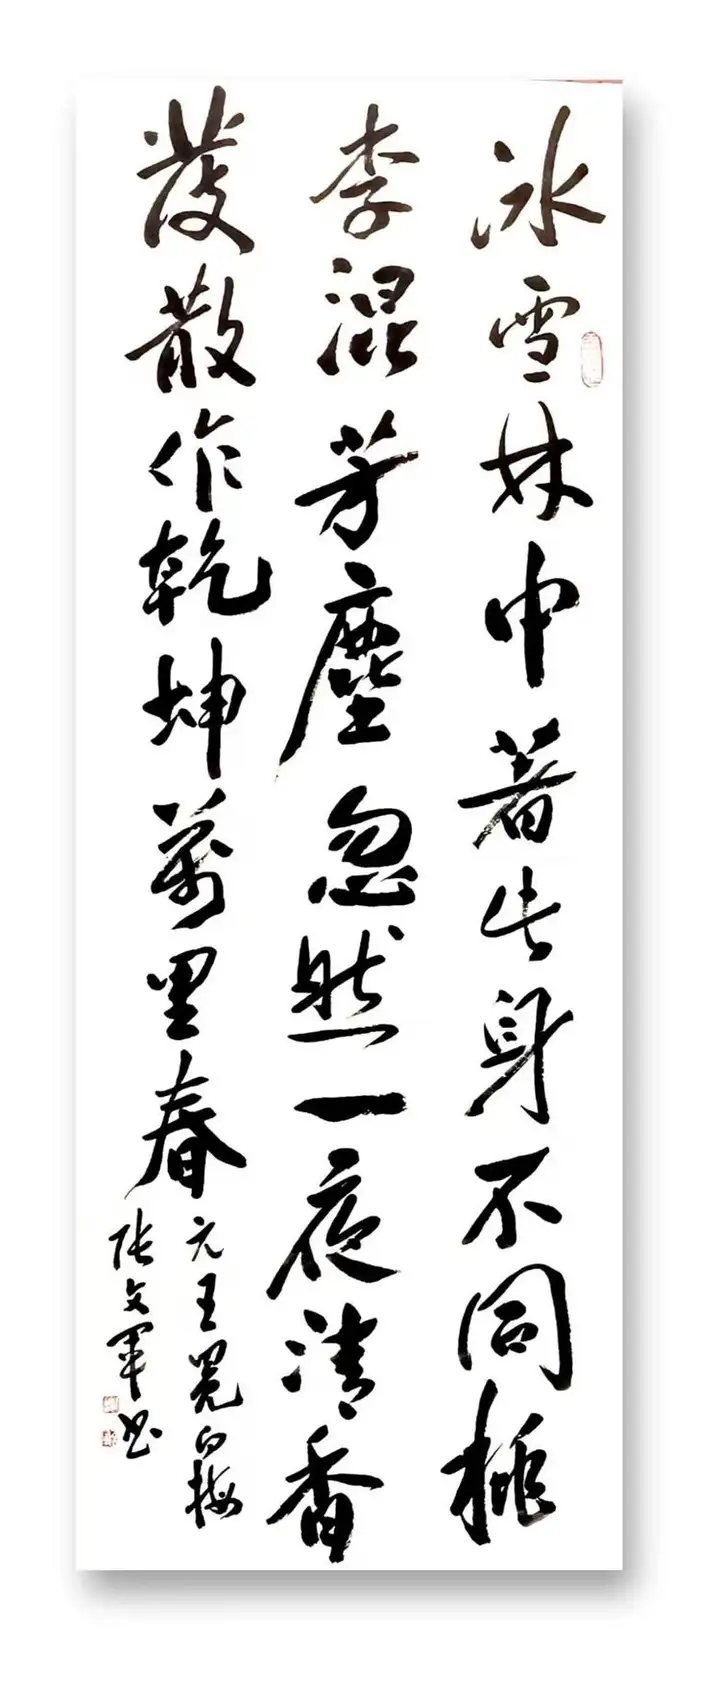 冰雪林中著此身不同桃
李混芳塵忽然一夜清香
發散作乾坤萬里春
元王冕白梅
张文軍书